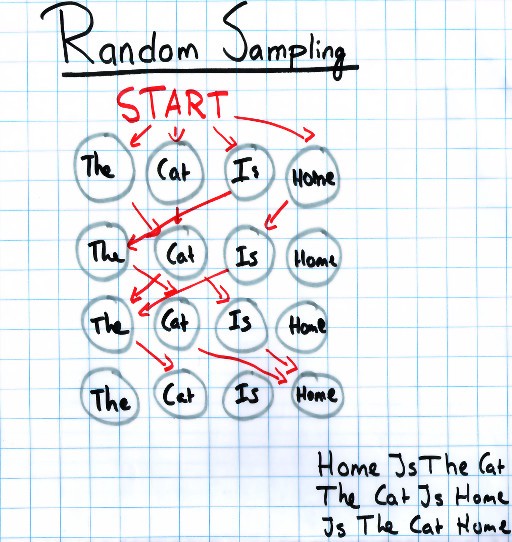 Random Sampling
START
The Cat Is Home
The Cat Is Home
The Cat Is Home
The Cat Is Home
Home Is The Cat
The Cat Is Home
Is The Cat Home